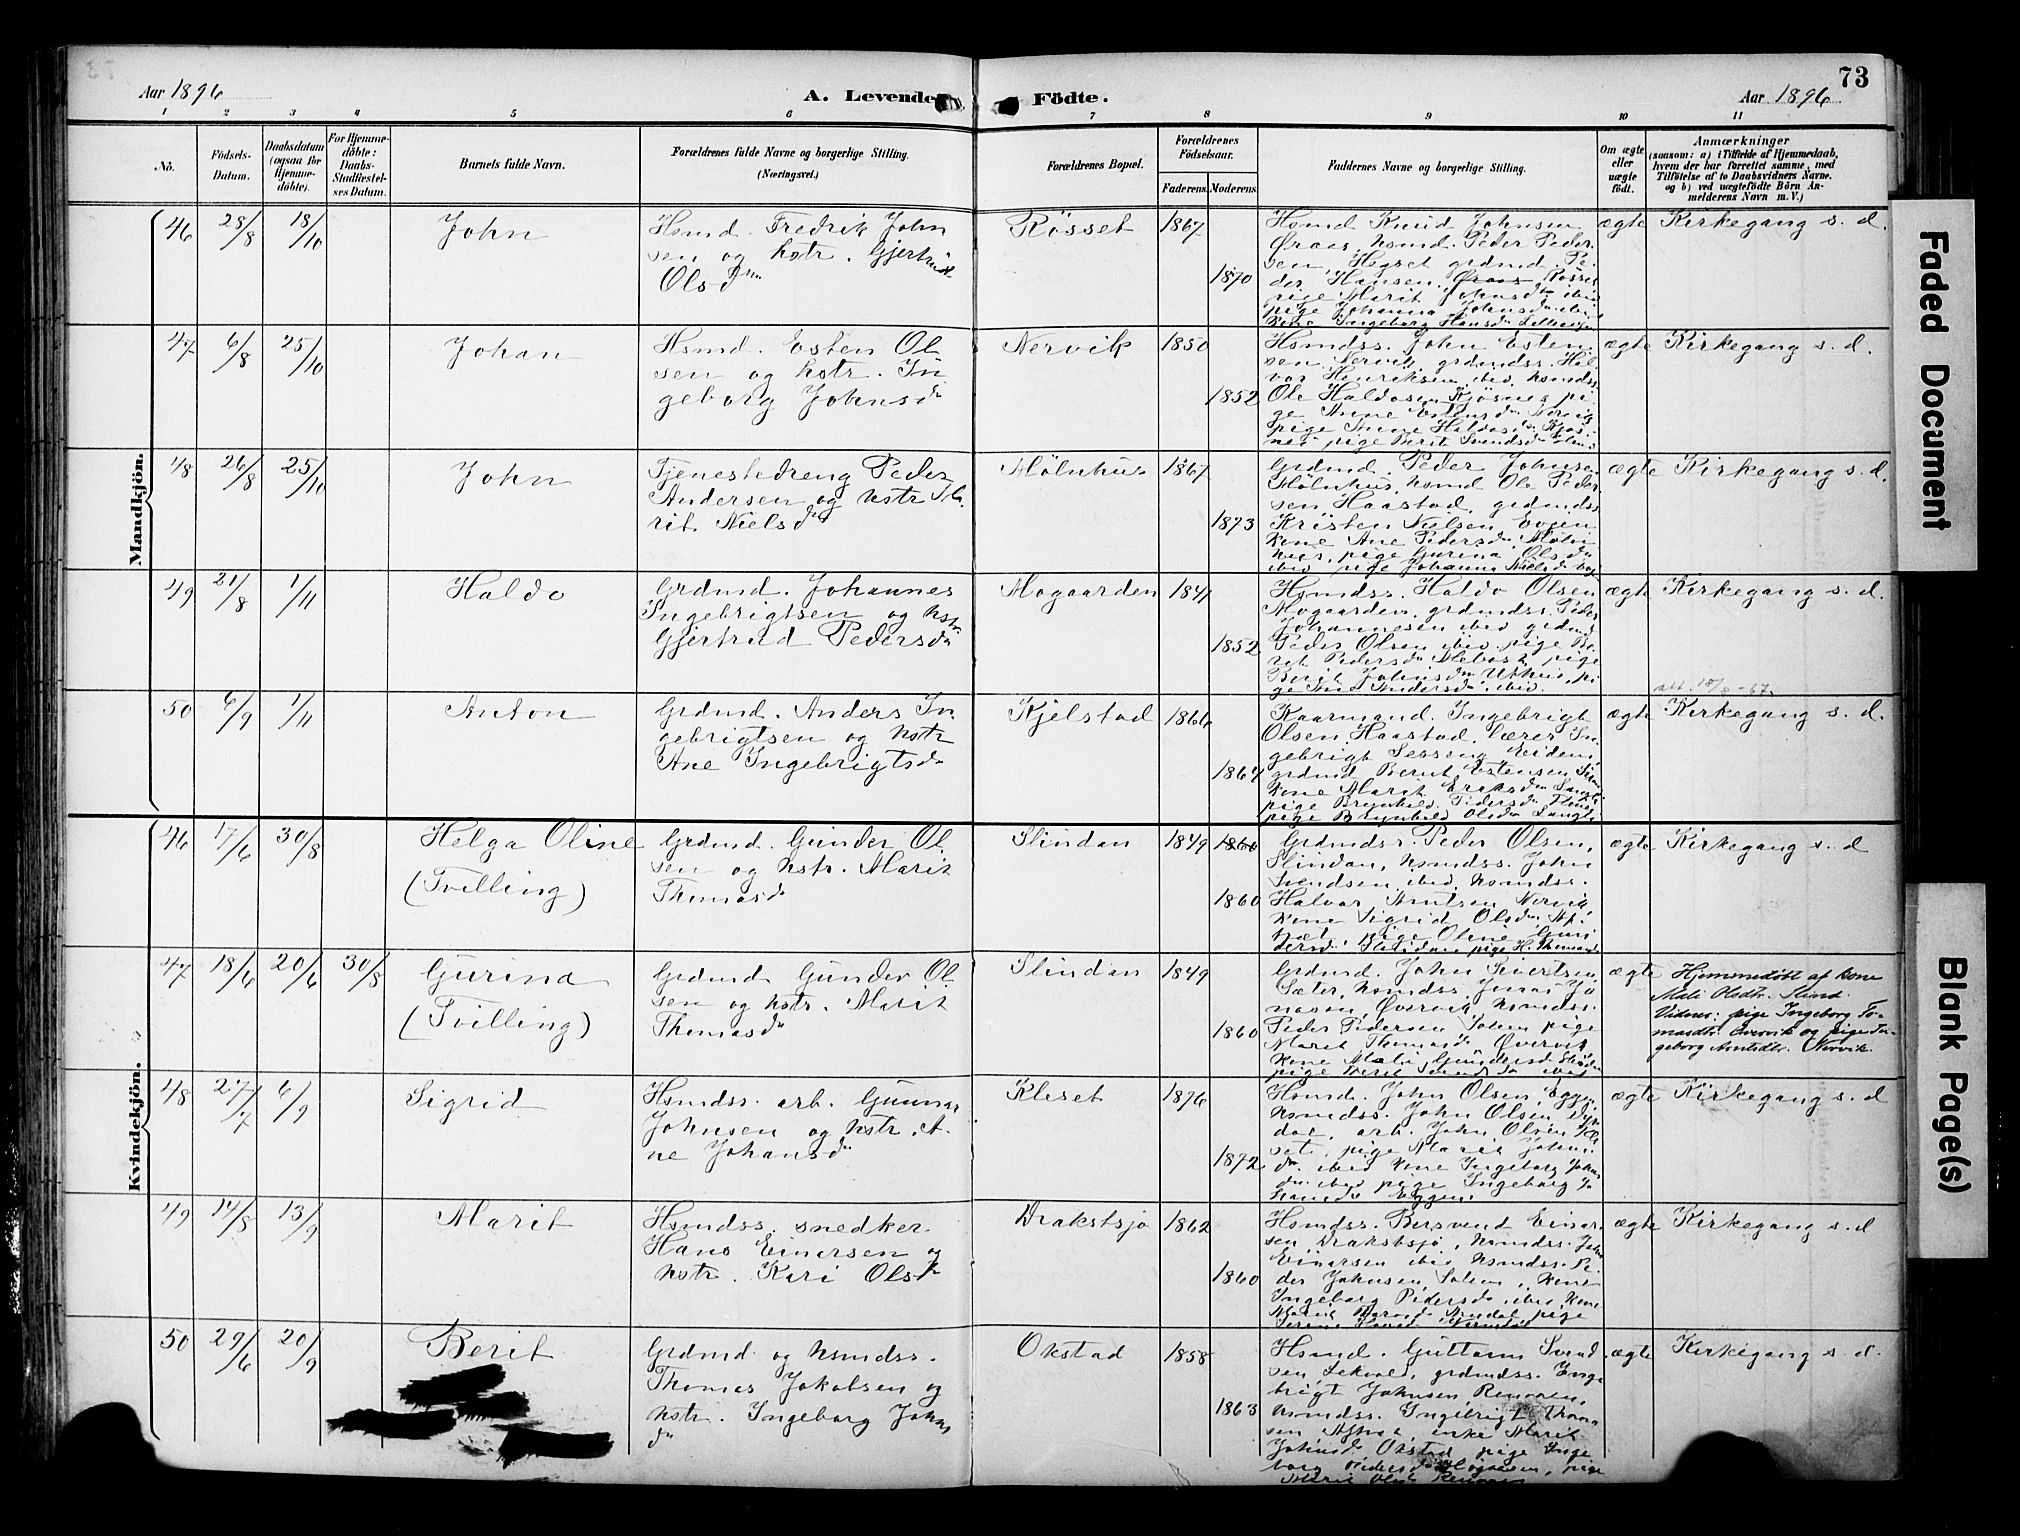 73
Aar 1896
A. Levende Födte.
Aar 1896
1 2 3 4 5 6 7 8 9 10 11
No.
Födsels-Datum.
Daabsdatum (ogsaa for Hjemme-döbte).
For Hjemme-döbte: Daabs-Stadfæstel-ses Datum.
Barnets fulde Navn.
Forældrenes fulde Navne og borgerlige Stilling.
(Næringsvei.)
Forældrenes Bopæl.
Forældrenes Födselsaar.
Faderens. Moderens.
Faddernes Navne og borgerlige Stilling.
Om ægte eller uægte födt.
Anmærkninger
(saasom: a) i Tilfælde af Hjemmedaab,
hvem der har forrettet samme, med
Tilföielse af to Daabsvidners Navne.
og b) ved uægtefödte Börn An-
melderens Navn m. V.)
Mandkjön.
46 28/8 18/10 John
Hsmd. Fredrik John
sen og hstr. Gjertrud
Olsdtr
Rösset 1867 1870
Hsmd Knud Johnsen
Öraas, hsmd. Peder Peder
sen, grdmd. Pe
der Hansen Rösset
pige Marit Johnsdtr ibid
pige Johanna Johnsdtr ibid
kone Ingeborg Hansdtr
ægte Kirkegang s. d.
47 6/8 25/10 Johan
Hsmd. Esten Ol
sen og hstr. In
geborg Johnsdtr
Nervik 1850 1852
Hsmdss. John Esten
sen Nervik grdmdss. Hal
vor Henriksen ibid, hsmdss
Ole Haldosen Kjösnes pi
ge Anne Estensdtr Nervik
pige Haldosdtr Kjös
nes pige Berit Svendsdtr
ægte Kirkegang s. d.
48 26/8 25/10 John
Tjenestedreng Peder
Andersen og hstr Ma
rit Nielsdtr
Mölnhus 1867 1873
Grdmd. Peder Johnsen
Mölnhus, hsmd Ole Peder
sen Haastad, grdmdss
Kristen Nielsen
kone Ane Pedersdtr Möln
hus, pige Gurina Olsdtr
ibid, pige Johanna Nielsdtr
ægte Kirkegang s. d.
49 21/8 1/11 Haldo
Grdmd. Johannes
Ingebrigtsen og hstr.
Gjertrud Pedersdtr
Mogaarden 1841 1852
Hsmdss. Haldo Olsen
Mogaarden, grdmdss. Peder
Johannesen ibid grdmd
Peder Olsen ibid pige Be
rit Pedersdtr pige
Berit Johnsdtr Uthus, pi
ge Andersdtr ibid.
ægte Kirkegang s. d.
att. 18/8-67.
50 6/9 1/11 Anton
Grdmd. Anders In
gebrigtsen og hstr
Ane Ingebrigtsdtr
Kjelstad 1866 1864
Kaarmand. Ingebrigt
Olsen Haastad, lærer In
gebrigt Sesseng Eidem,
grdmd Berit Estensen
kone Marit Eriksdtr
pige Brynhild Pedersdtr
pige Brynhild Olsdtr
ægte Kirkegang s. d.
Kvindekjön.
46 17/6 30/8 Helga Oline
(Tvilling)
Grdmd. Gunder Ol
sen og hstr. Marit
Thomasdtr
Slindan 1849 1860 1860
Grdmdss. Peder Olsen,
Slindan, hsmdss. John
Svendsen ibid, hsmdss.
Halvor Arntsen Nervik
kone Sigrid Olsdtr
pige Oline Gun
dersdtr Slindan pige H. Thomasdtr
ægte Kirkegang s. d
47 18/6 20/6 30/8 Gurina
(Tvilling)
Grdmd Gunder Ol
sen og hstr. Marit
Thomasdtr
Slindan 1849 1860
Grdmd. John Sivertsen
Sæter, hsmdss. Jonas Jo
nason, Övervik hsmdss.
Peder Pedersen Solem pige
Marit Thomasdtr Övervik
kone Mali Gundersdtr
pige Berit Svendsdtr ibid
ægte Hjemmedöbt af kone
Mali Olsdtr. Slind.
Vidner: pige Ingeborg To-
masdtr. Overvik og pige In-
geborg Arntsdtr. Nervik.
48 27/7 6/9 Sigrid
Hsmdss. arb. Gunnar
Johnsen og hstr. A-
ne Johansdtr
Kleset 1876 1872
Hsmd. John Olsen, Eggen
hsmdss. John Olsen
arb. John Olsen Kle
set, pige Marit Johns
dtr. ibid kone Ingeborg Johns
dtr ibid pige Ingeborg
Eggen
ægte Kirkegang s. d
49 14/8 13/9 Marit
Hsmdss. snedker
Hans Einarsen og
hstr. Kari Olsdtr
Drakstsjö 1862 1860
Hsmdss. Bersvend Einar
sen Drakstsjö, hsmdss. John
Einarsen ibid hsmdss. Pe
der Johnsen, Solem, kone
Ingeborg Pedersdtr, ibid kone
Marit pige
ægte Kirkegang s. d
50 29/6 20/9 Berit
Grdmd og hsmdss.
Thomas Jakobsen og
hstr. Ingeborg Johns
dtr
Okstad 1858 1863
Hsmd. Guttorm Svend
sen, grdmdss. Inge
brigt Johnsen Renaaen,
hsmdss. Ingebrigt Thoma
sen, enke Marit
Johnsdtr Okstad pige Inge
borg Pedersdtr, pige
Marit Olsdtr
ægte Kirkegang s. d.
Faded Document
Blank Page(s)